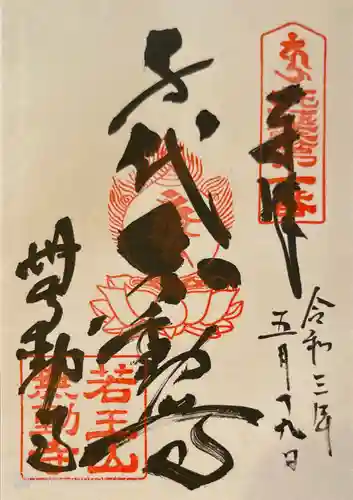 奉拝
令和三年
五月十九日
千代不動尊
無動寺
若王山
無動寺